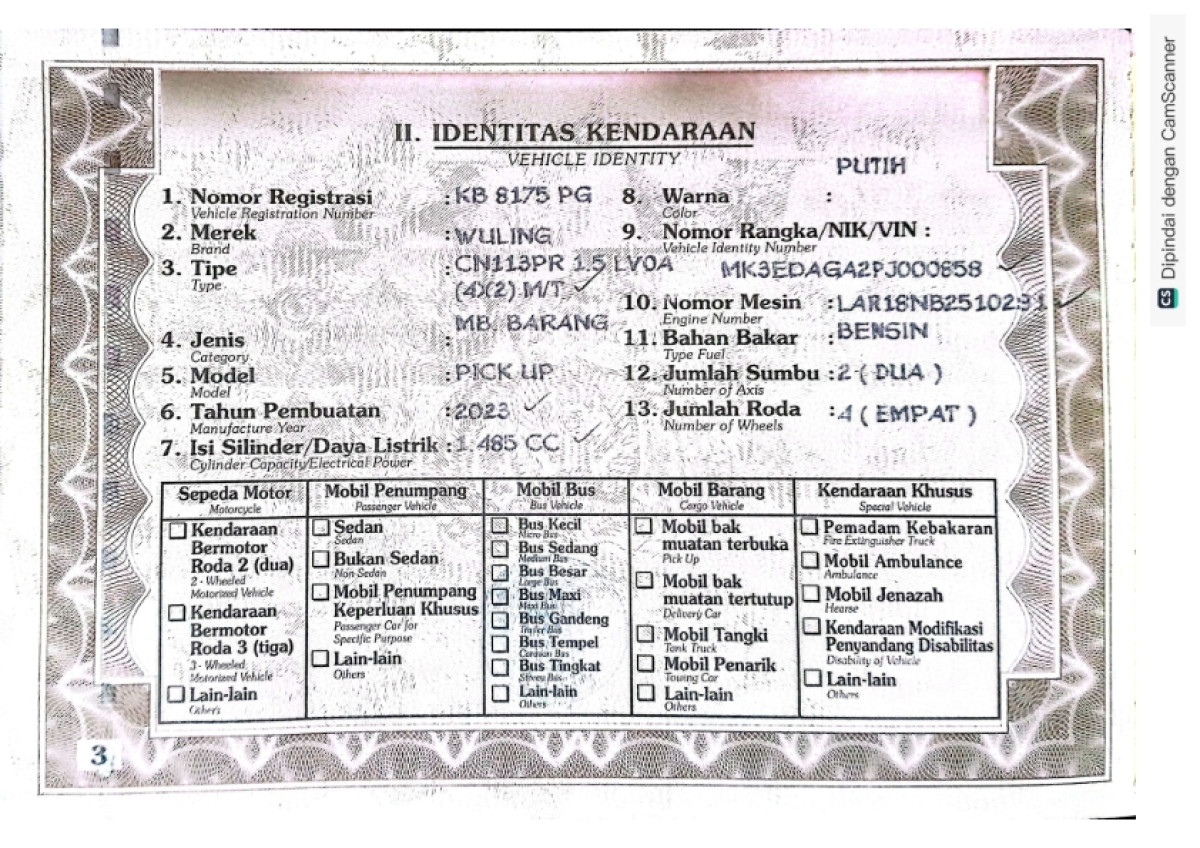 II. IDENTITAS KENDARAAN
VEHICLE IDENTITY
1. Nomor Registrasi : KB 8175 PG
Vehicle Registration Number
2. Merek : WULING
Brand
3. Tipe : CN113PR 1.5 LV0A
Type
(4X(2) M/T
4. Jenis : MB. BARANG
Category
5. Model : PICK UP
Model
6. Tahun Pembuatan : 2023
Manufacture Year
7. Isi Silinder/Daya Listrik : 1.485 CC
Cylinder Capacity/Electrical Power
8. Warna : PUTIH
Color
9. Nomor Rangka/NIK/VIN :
Vehicle Identity Number
MK3EDAGA2PJ000858
10. Nomor Mesin : LAR18NB2510291
Engine Number
11. Bahan Bakar : BENSIN
Type Fuel
12. Jumlah Sumbu : 2 ( DUA )
Number of Axis
13. Jumlah Roda : 4 ( EMPAT )
Number of Wheels
Sepeda Motor
Motorcycle
Kendaraan
Bermotor
Roda 2 (dua)
2 - Wheeled
Motorized Vehicle
Kendaraan
Bermotor
Roda 3 (tiga)
3 - Wheeled
Motorized Vehicle
Lain-lain
Others
Mobil Penumpang
Passenger Vehicle
Sedan
Sedan
Bukan Sedan
Non Sedan
Mobil Penumpang
Keperluan Khusus
Passenger Car for
Specific Purpose
Lain-lain
Others
Mobil Bus
Bus Vehicle
Bus Kecil
Micro Bus
Bus Sedang
Medium Bus
Bus Besar
Large Bus
Bus Maxi
Maxi Bus
Bus Gandeng
Trailer Bus
Bus Tempel
Caravan Bus
Bus Tingkat
Lain-lain
Others
Mobil Barang
Cargo Vehicle
Mobil bak
muatan terbuka
Pick Up
Mobil bak
muatan tertutup
Delivery Car
Mobil Tangki
Tank Truck
Mobil Penarik
Towing Car
Lain-lain
Others
Kendaraan Khusus
Special Vehicle
Pemadam Kebakaran
Fire Extinguisher Truck
Mobil Ambulance
Ambulance
Mobil Jenazah
Hearse
Kendaraan Modifikasi
Penyandang Disabilitas
Disability of Vehicle
Lain-lain
Others
3
CS Dipindai dengan CamScanner